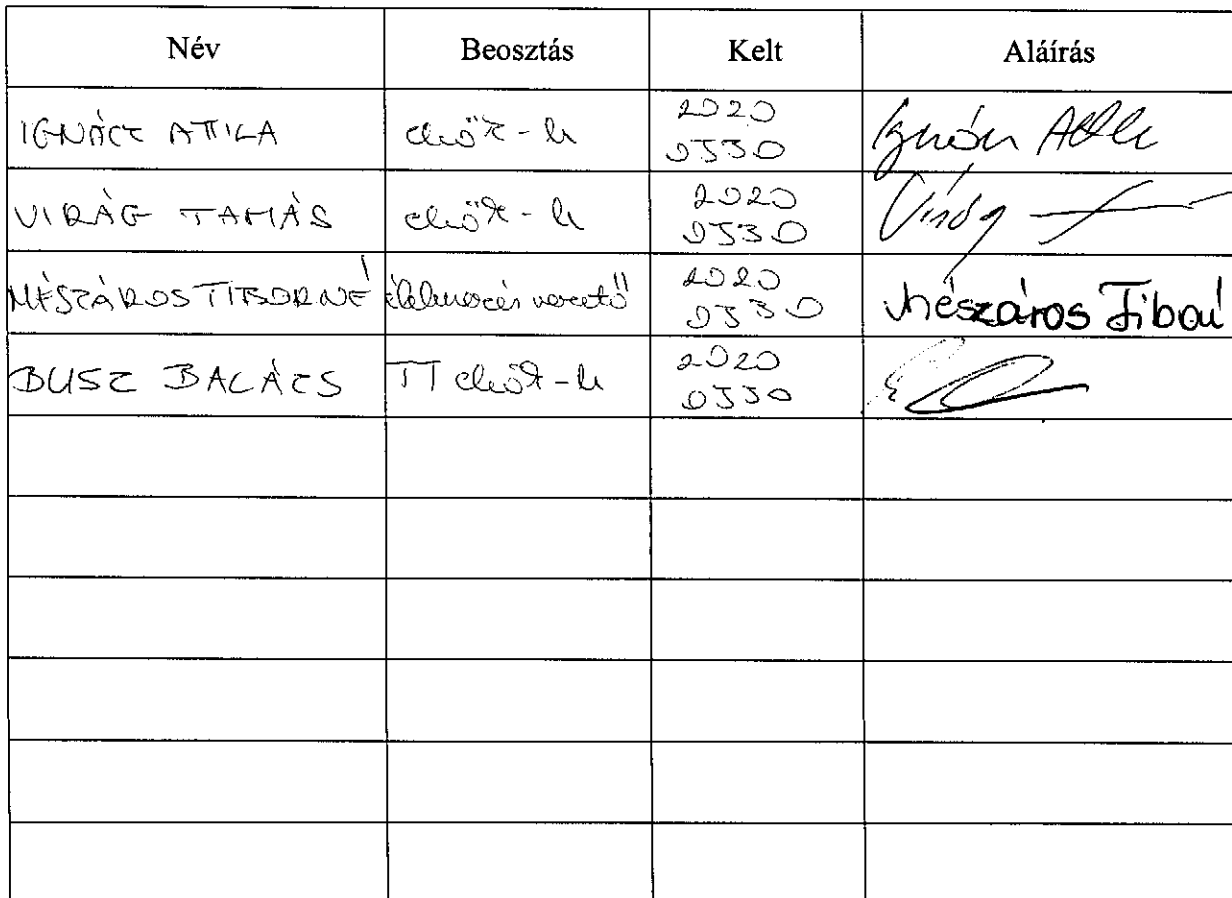 Név Beosztás Kelt Aláírás
IGNÁCZ ATTILA elnök-h 2020 0530 Ignácz Attila
VIRÁG TAMÁS elnök-h 2020 0530 Virág
MÉSZÁROS TIBORNÉ vezető 2020 0530 Mészáros Tiborné
BUSZ BALÁZS TT elnök-h 2020 0530